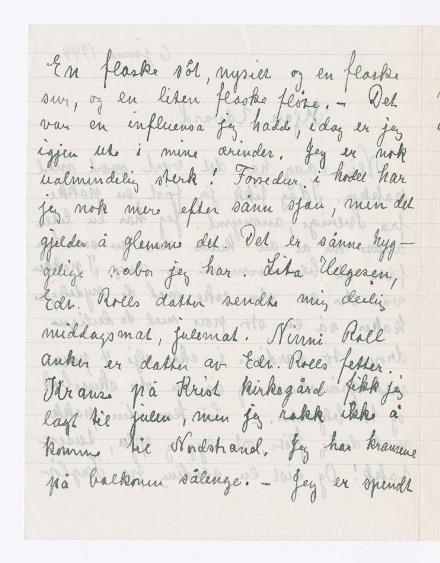 En flaske söt, nysilt og en flaske
sur, og en liten flaske fløte. – Det
var en influensa jeg hadde, idag er jeg
igjen ute i mine ærinder. Jeg er nok
ualmindelig sterk! Forsedur i hodet har
jeg nok mere efter sånn sjau, men det
gjelder å glemme det. Det er sånne hyg-
gelige naboer jeg har. Lita Helgesen,
Edv. Rolls datter sendte mig deilig
middagsmat, julemat. Ninni Roll
Anker er datter av Edv. Rolls fetter.
Kranse på Krist kirkegård fikk jeg
lagt til julen, men jeg rakk ikke å
komme til Nordstrand. Jeg har kransene
på balkonen sålenge. – Jeg er spendt